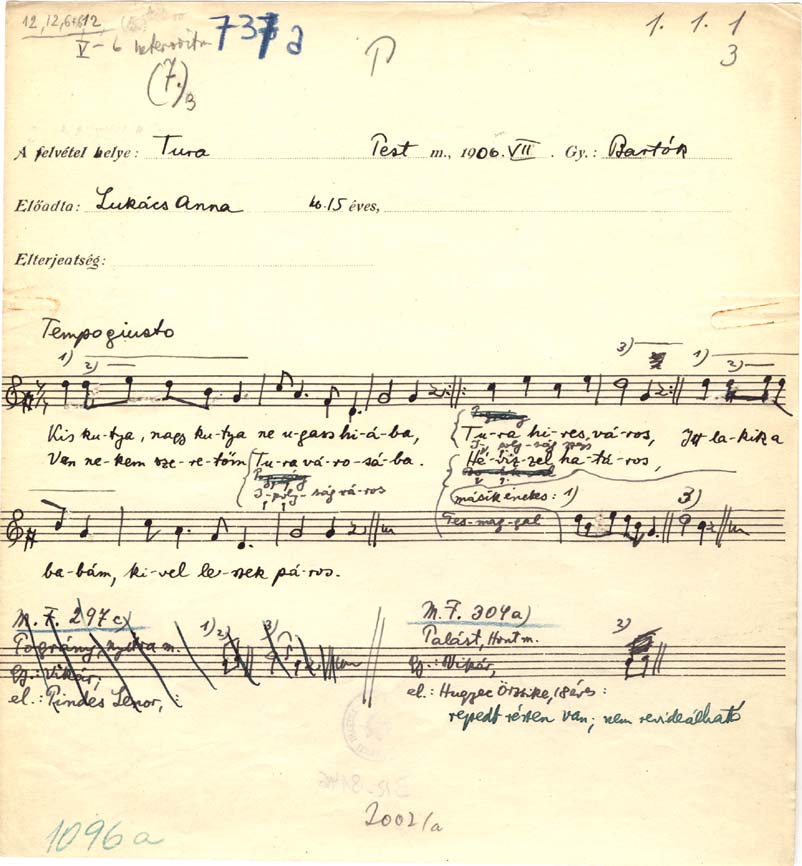 12, 12, 6+6, 12
V – 6 heterovitm
737a
P
1. 1. 1
3
(7.)3
A felvétel helye: Tura Pest m., 1906. VII. Gy.: Bartók
Előadta: Lukács Anna k. 15 éves,
Elterjedtség:
Tempo giusto
1) 2) 3) 1) 2)
Kis ku-tya, nagy ku-tya ne u-gass hi-á-ba, Tu-ra hí-res, vá-ros, Itt la-kik a
Van ne-kem sze-re-tőm Tu-ra vá-ro-sá-ba. Hé-viz-zel ha-tá-ros,
I-poly-ság vá-ros
másik énekes: 1) 3)
ba-bám, ki-vel le-szek pá-ros.
M. F. 297c) M. F. 309a)
1) 2) 3) Palást, Hont m. 2)
Gy.: Vikár, Gy.: Vikár,
el.: Pindes Lenor, el.: Hugyec Örzsike, 18 éves:
repedt részen van; nem revideálható
2002/a
1096a